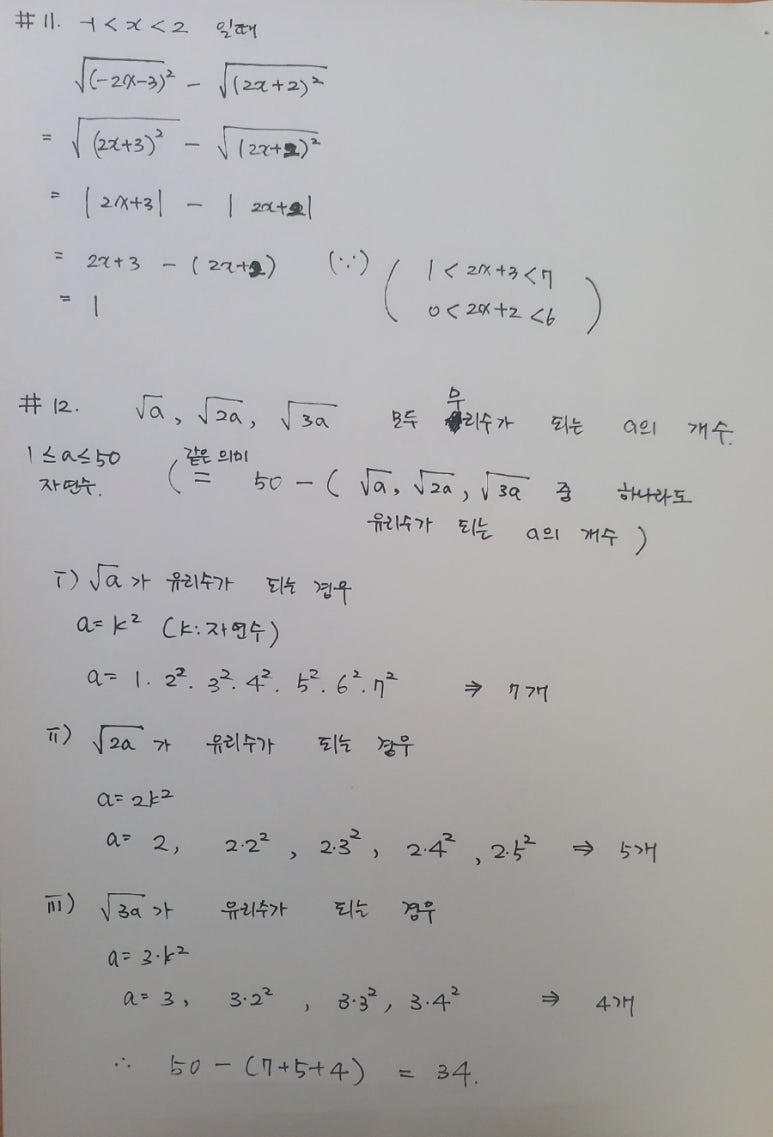 #11. -1<x<2 일때
√(-2x-3)² - √(2x+2)²
= √(2x+3)² - √(2x+2)²
= |2x+3| - |2x+2|
= 2x+3 - (2x+2) (∵) ( 1<2x+3<7
= 1 0<2x+2<6 )
#12. √a, √2a, √3a 모두 무리수가 되는 a의 개수.
1≤a≤50 자연수.
( 같은 의미 ≡ 50 - ( √a, √2a, √3a 중 하나라도
유리수가 되는 a의 개수 )
i) √a가 유리수가 되는 경우
a=k² (k:자연수)
a= 1. 2². 3². 4². 5². 6². 7² ⇒ 7개
ii) √2a가 유리수가 되는 경우
a=2k²
a= 2, 2·2², 2·3², 2·4², 2·5² ⇒ 5개
iii) √3a가 유리수가 되는 경우
a=3·k²
a= 3, 3·2², 3·3², 3·4² ⇒ 4개
∴ 50 - (7+5+4) = 34.